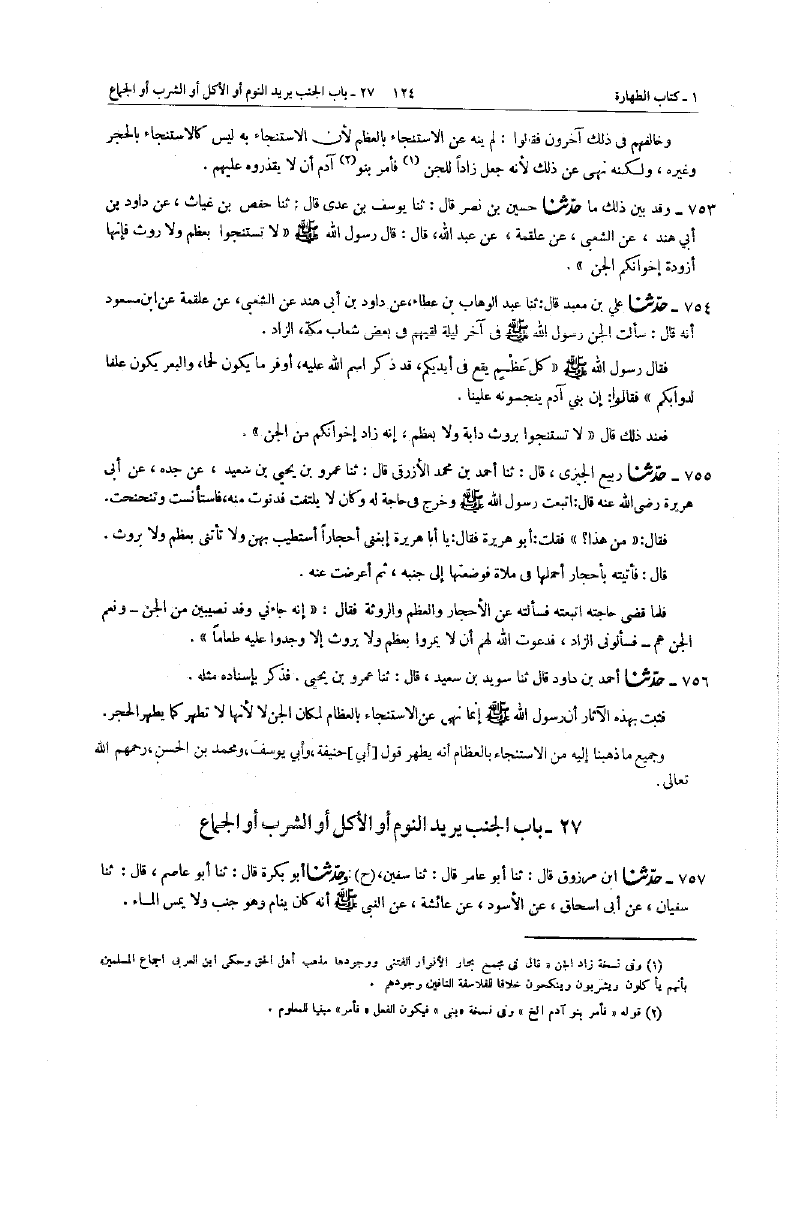 ١ ـ كتاب الطهارة ١٢٤ ٢٧ ـ باب الجنب يريد النوم أو الأكل أو الشرب أو الجماع
وخالفهم فى ذلك آخرون فقالوا : لم ينه عن الاستنجاء بالعظام لأن الاستنجاء به ليس كالاستنجاء بالحجر
وغيره ، ولكنه نهى عن ذلك لأنه جعل زاداً للجن (١) فأمر بنو(٢) آدم أن لا يقذروه عليهم .
٧٥٣ ـ وقد بين ذلك ما حدّثنا حسين بن نصر قال : ثنا يوسف بن عدى قال : ثنا حفص بن غياث ، عن داود بن
أبي هند ، عن الشعبى ، عن علقمة ، عن عبد الله، قال : قال رسول الله ﷺ « لا تستنجوا بعظم ولا روث فإنها
أزودة إخوانكم الجن » .
٧٥٤ ـ حدّثنا علي بن معبد قال:ثنا عبد الوهاب بن عطاء،عن داود بن أبى هند عن الشعبى، عن علقمة عن ابن مسعود
أنه قال : سألت الجن رسول الله ﷺ فى آخر ليلة لقيهم فى بعض شعاب مكة، الزاد .
فقال رسول الله ﷺ « كل عَظْـمٍ يقع فى أيديكم، قد ذكر اسم الله عليه، أوفر ما يكون لحما، والبعر يكون علفا
لدوابكم » فقالوا: إن بني آدم ينجسونه علينا .
فعند ذلك قال « لا تستنجوا بروث دابة ولا بعظم ، إنه زاد إخوانكم من الجن » .
٧٥٥ ـ حدّثنا ربيع الجيزى ، قال : ثنا أحمد بن محمد الأزرق قال : ثنا عمرو بن يحيى بن سعيد ، عن جده ، عن أبى
هريرة رضى الله عنه قال:اتبعت رسول الله ﷺ وخرج فى حاجة له وكان لا يلتفت فدنوت منه،فاستأنست وتنحنحت.
فقال:« من هذا؟ » فقلت:أبو هريرة فقال:يا أبا هريرة إبغنى أحجاراً أستطيب بهن ولا تأتنى بعظم ولا بروث .
قال : فأتيته بأحجار أحملها فى ملاة فوضعتها إلى جنبه ، ثم أعرضت عنه .
فلما قضى حاجته اتبعته فسألته عن الأحجار والعظم والروثة فقال : « إنه جاءني وفد نصيبين من الجن ـ ونعم
الجن هم ـ فسألونى الزاد ، فدعوت الله لهم أن لا يمروا بعظم ولا بروث إلا وجدوا عليه طعاماً » .
٧٥٦ ـ حدّثنا أحمد بن داود قال ثنا سويد بن سعيد ، قال : ثنا عمرو بن يحيى . فذكر بإسناده مثله .
فثبت بهذه الآثار أن رسول الله ﷺ إنما نهى عن الاستنجاء بالعظام لمكان الجن لا لأنها لا تطهر كما يطهر الحجر.
وجميع ما ذهبنا إليه من الاستنجاء بالعظام أنه يطهر قول [أبي] حنيفة،وأبي يوسف،ومحمد بن الحسن،رحمهم الله
تعالى.
٢٧ ـ باب الجنب يريد النوم أو الأكل أو الشرب أو الجماع
٧٥٧ ـ حدّثنا ابن مرزوق قال : ثنا أبو عامر قال : ثنا سفين،(ح) وحدّثنا أبو بكرة قال : ثنا أبو عاصم ، قال : ثنا
سفيان ، عن أبى اسحاق ، عن الأسود ، عن عائشة ، عن النبى ﷺ أنه كان ينام وهو جنب ولا يمس الماء .
(١) وفى نسخة زاد الجن « قال فى مجمع بحار الأنوار الفتنى ووجودها مذهب أهل الحق وحكى ابن العربى اجماع المسلمين
بأنهم يأكلون ويشربون وينكحون خلافا للفلاسفة النافين وجودهم .
(٢) قوله « فأمر بنو آدم الخ » وفى نسخة «بنى » فيكون الفعل « فأمر» مبنيا للمعلوم .